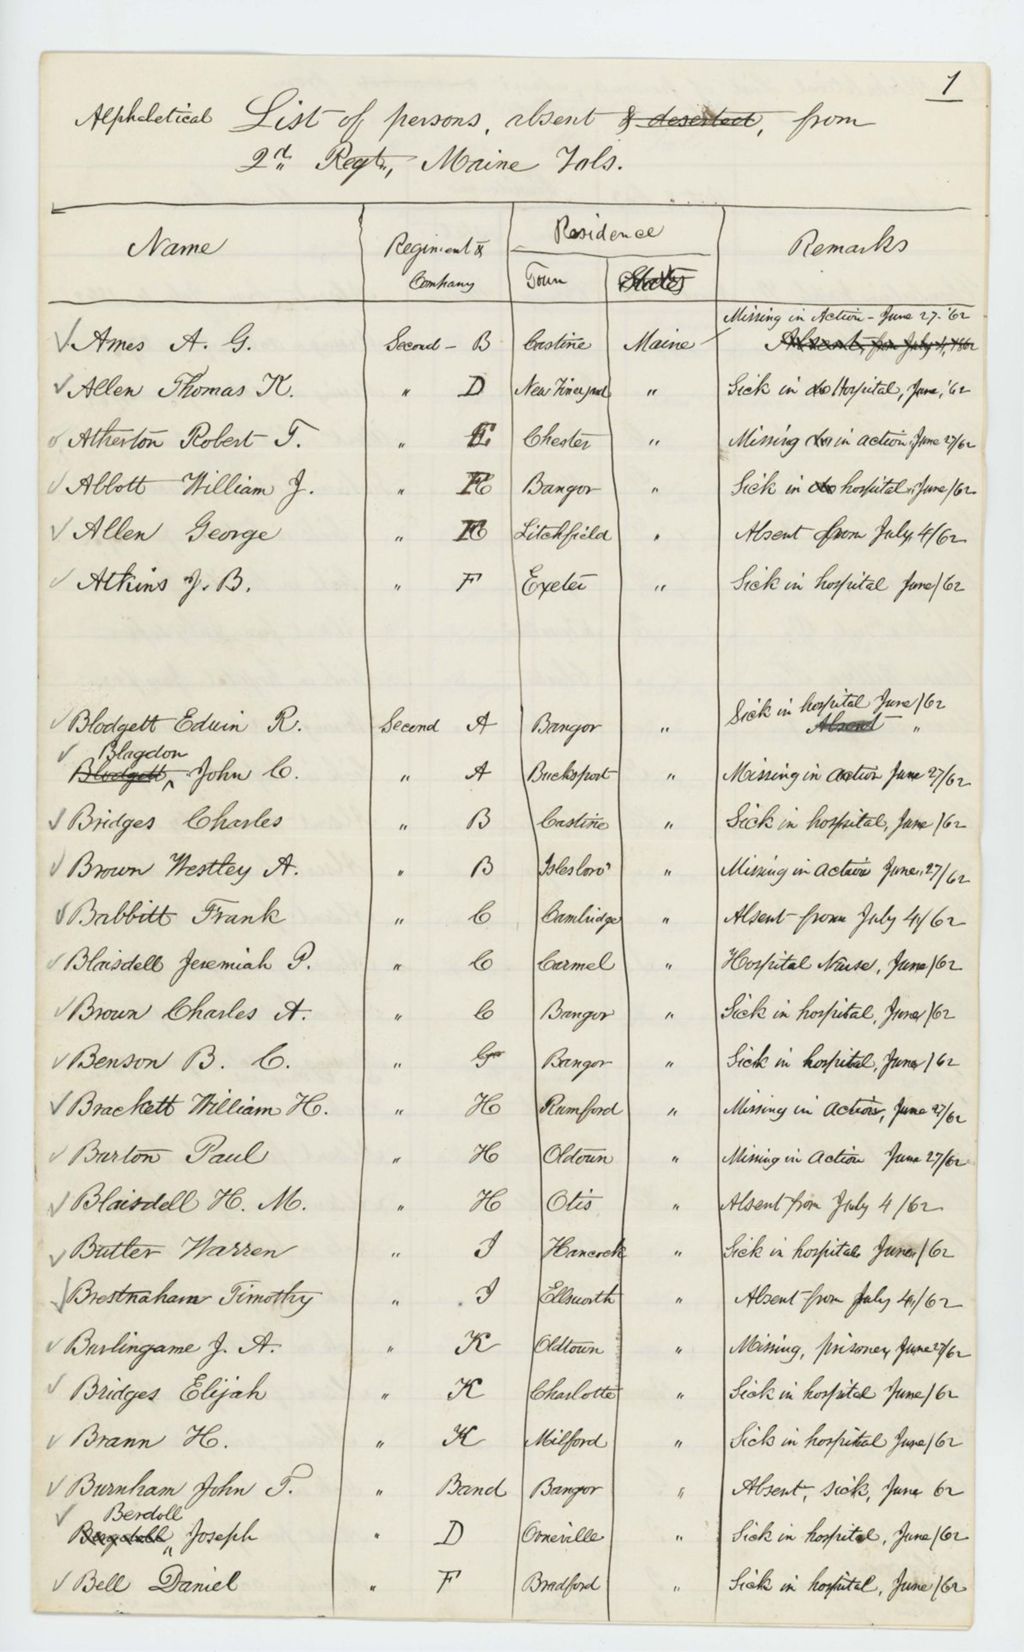 1
Alphabetical List of persons, absent & deserted, from
2d Regt., Maine Vols.
Name Regiment & Company Residence Remarks
Town States
Missing in Action - June 27. '62
Ames A. G. Second - B Castine Maine Absent, from July 4, 1862
Allen Thomas K. " D New Vineyard " Sick in Hospital, June, '62
Atherton Robert T. " E Chester " Missing in action, June 27/62
Abbott William J. " Bangor " Sick in hospital, June/62
Allen George " Litchfield " Absent from July 4/62
Atkins J. B. " F Exeter " Sick in hospital June/62
Blodgett Edwin R. Second A Bangor " Sick in hospital June/62
Absent "
Blagdon
Blodgett ^ John C. " A Bucksport " Missing in action June 27/62
Bridges Charles " B Castine " Sick in hospital, June/62
Brown Westley A. " B Islesboro' " Missing in action June 27/62
Babbitt Frank " C Cambridge " Absent from July 4/62
Blaisdell Jeremiah P. " C Carmel " Hospital Nurse, June/62
Brown Charles A. " C Bangor " Sick in hospital, June/62
Benson B. C. " G Bangor " Sick in hospital, June/62
Brackett William H. " H Rumford " Missing in action, June 27/62
Burton Paul " H Oldtown " Missing in action June 27/62
Blaisdell H. M. " H Otis " Absent from July 4/62
Butler Warren " I Hancock " Sick in hospital June/62
Brestnaham Timothy " I Ellsworth " Absent from July 4/62
Burlingame J. A. " K Oldtown " Missing, prisoner June 27/62
Bridges Elijah " K Charlotte " Sick in hospital June/62
Brann H. " K Milford " Sick in hospital June/62
Burnham John T. " Band Bangor " Absent, sick, June 62
Berdoll
Joseph " D Orneville " Sick in hospital, June/62
Bell Daniel " F Bradford " Sick in hospital, June/62